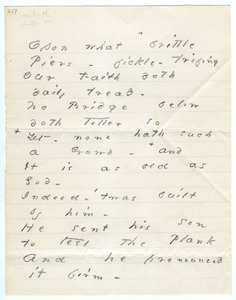 Opon what brittle
Piers -
Our Faith doth
daily tread -
No Bridge below
doth totter so
+ Yet - none hath such
a Crowd - + and
It is as old as
God -
Indeed - 'twas built
by him -
He sent his son
to test the Plank
And he pronounced
it firm -